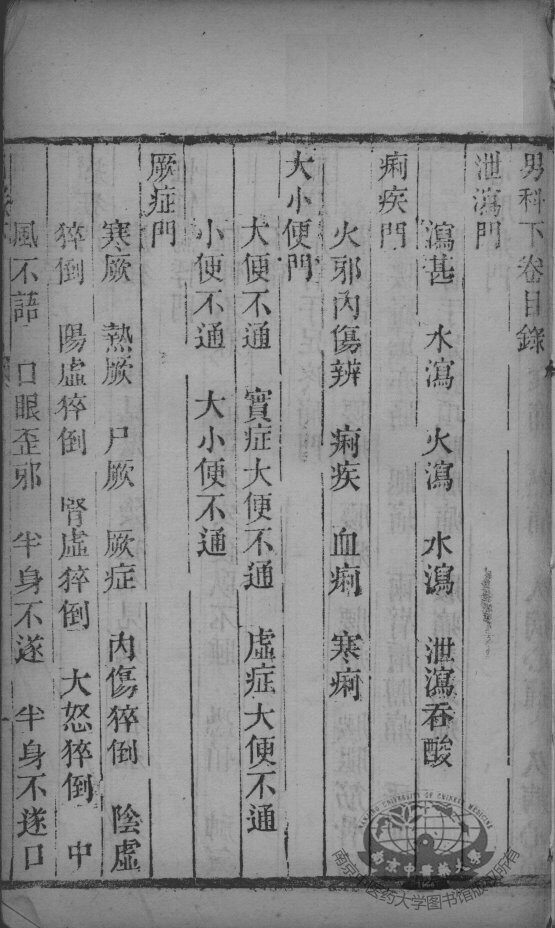 男科下卷目錄
泄瀉門
瀉甚 水瀉 火瀉 水瀉 泄瀉吞酸
痢疾門
火邪內傷辨 痢疾 血痢 寒痢
大小便門
大便不通 實症大便不通 虛症大便不通
小便不通 大小便不通
厥症門
寒厥 熱厥 尸厥 厥症 內傷猝倒 陰虛
猝倒 陽虛猝倒 腎虛猝倒 大怒猝倒 中
風不語 口眼歪邪 半身不遂 半身不遂口
NANJING UNIVERSITY OF CHINESE MEDICINE
南京中醫藥大學
南京中医药大学图书馆版权所有